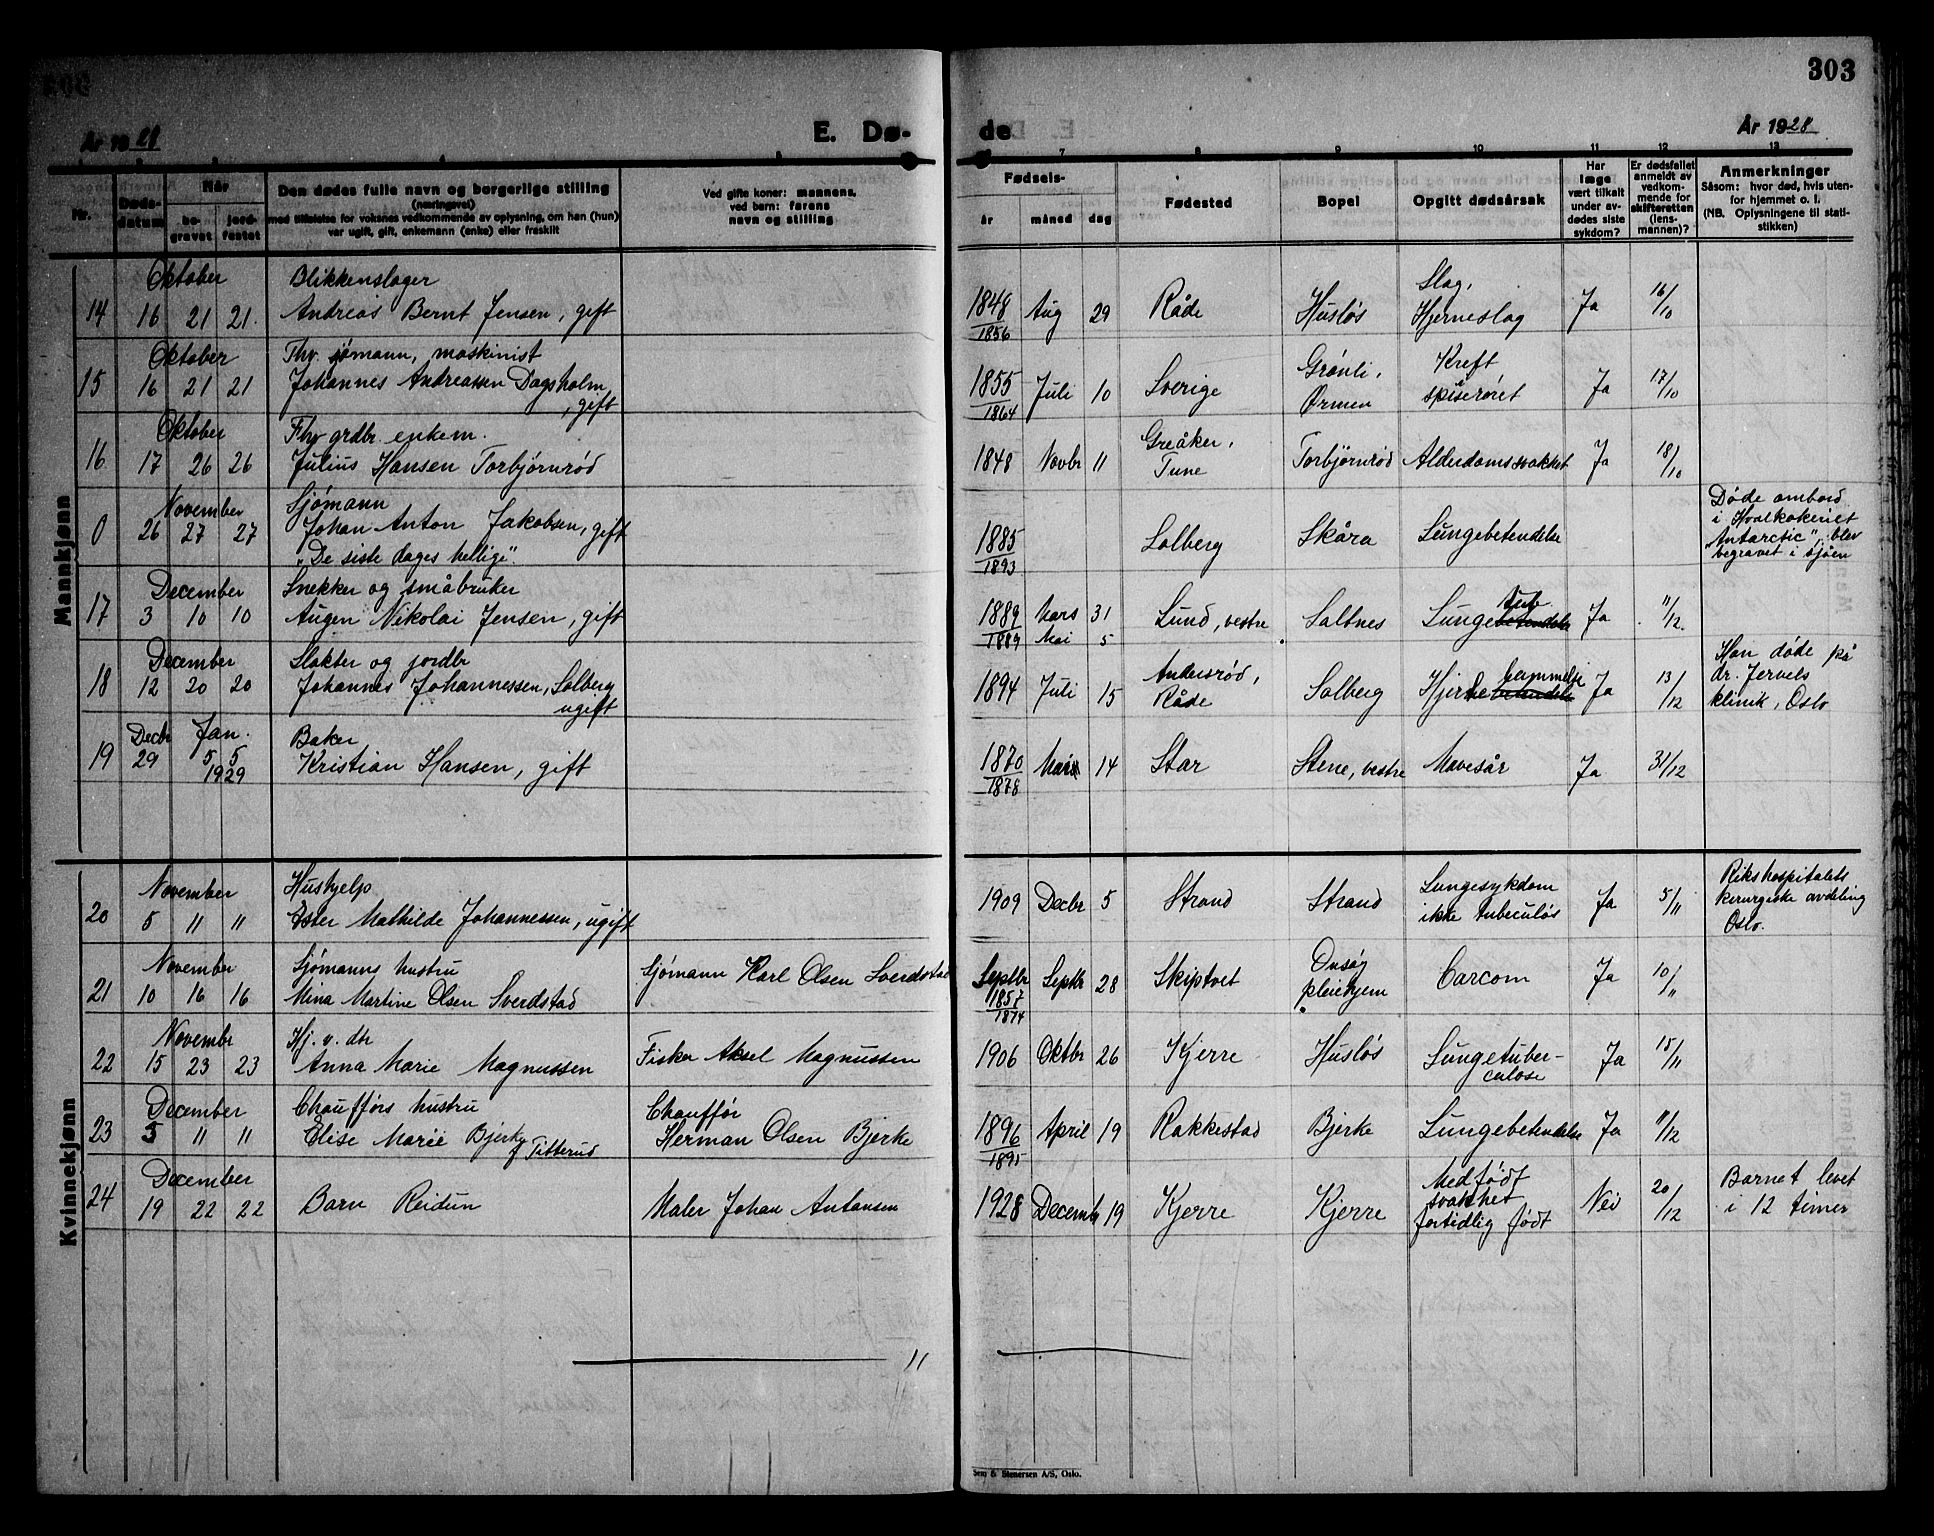 303
År 1928
E. Dø-
de
År 1928
7 8 9 10 11 12 13
Nr.
Døds-
datum
Når
be-
gravet
jord-
festet
Den dødes fulle navn og borgerlige stilling
(næringsvei)
med tilføielse for voksnes vedkommende av oplysning, om han (hun)
var ugift, gift, enkemann (enke) eller fraskilt
Ved gifte koner: mannens,
ved barn: farens
navn og stilling
Fødsels-
år måned dag
Fødested
Bopel
Opgitt dødsårsak
Har
læge
vært tilkalt
under av-
dødes siste
sykdom?
Er dødsfallet
anmeldt av
vedkom-
mende for
skifteretten
(lens-
mannen)?
Anmerkninger
Såsom: hvor død, hvis uten-
for hjemmet o. l.
(NB. Oplysningene til stati-
stikken)
Mannkjønn
Oktober Blikkenslager Slag,
14 16 21 21. Andreas Bernt Jensen, gift 1848 Aug 29 Råde Husløs Hjerneslag Ja 16/10
1856
Oktober Fhv. sjømann, maskinist Grønli, Kreft
15 16 21 21 Johannes Andreassen Dagsholm, 1855 Juli 10 Sverige Ørmen spiserøret Ja 17/10
, gift 1864
Oktober Fhv grdbr. enkem. Greåker,
16 17 26 26 Julius Hansen Torbjørnrød 1848 Novbr 11 Tune Torbjørnrød Alderdomssvakhet Ja 18/10
November Sjømann Døde ombord
0 26 27 27 Johan Anton Jakobsen, gift 1885 Solberg Skåra Lungebetendelse i Hvalkokeriet
"De siste dages hellige". 1893 "Antarctic", blev
begravet i sjøen
December Snekker og småbruker
17 3 10 10 Augen Nikolai Jensen, gift 1889 Mars 31 Lund, vestre Saltnes Lungebetendelse tub. Ja 11/12.
1889 Mai 5
December Slakter og jordbr Andersrød, Han døde på
18 12 20 20 Johannes Johannessen, Solberg 1894 Juli 15 Råde Solberg Hjerne Ja 13/12 dr. Jervels
ugift klinik, Oslo
Decbr Jan. Baker
19 29 5 5 Kristian Hansen, gift 1870 14 Star Stene, vestre Mavesår Ja 31/12
1929 1878
Kvinnekjønn
November Hushjelp Lungesykdom Rikshospitalets
20 5 11 11 Ester Mathilde Johannessen, ugift 1909 Decbr 5 Strand Strand ikke tubeculøs Ja 5/11 kirurgiske avdeling
Oslo.
November Sjømanns hustru Onsøy
21 10 16 16 Mina Martine Olsen Sverdstad Sjømann Karl Olsen Sverdstad Septbr Septbr 28 Skiptvet pleiehjem Carcom Ja 10/11
1857
1874
Novembr Hj. v. dtr
22 15 23 23 Anna Marie Magnussen Fisker Aksel Magnussen 1906 Oktbr 26 Kjerre Husløs Lungetuber-
culose Ja 15/11
December Chaufførs hustru Chauffør
23 5 11 11 Elise Marie Bjerky Herman Olsen Bjerke 1896 April 19 Rakkestad Bjerke Lungebetendelse Ja 11/12
f Titterud 1895
December Medfødt
24 19 22 22 Barn Reidun Maler Johan Antonsen 1928 Decembr 19 Kjerre Kjerre svakhet Nei 20/12 Barnet levet
fortidlig født i 12 timer
11
Sem & Stenersen A/S, Oslo.